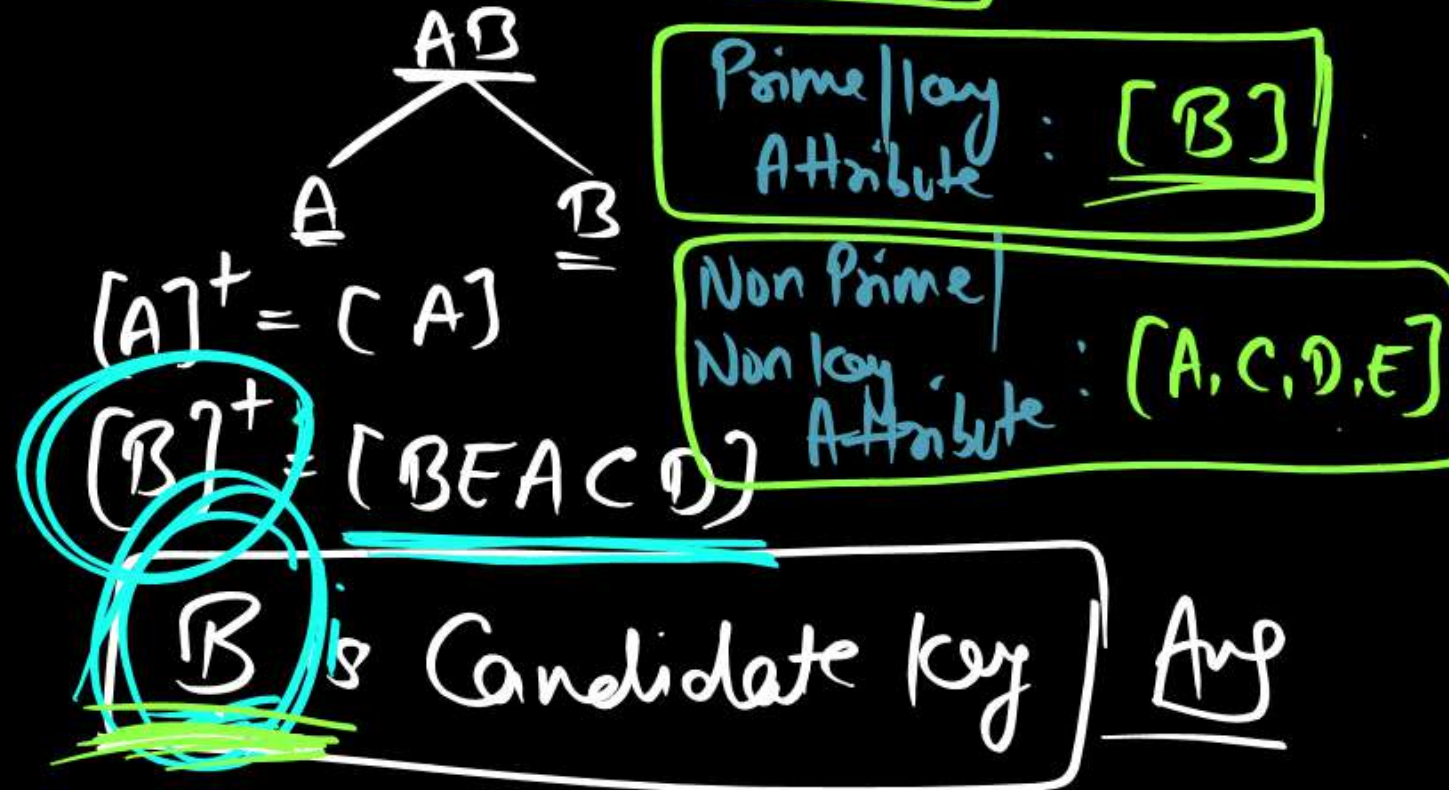 AB
A B
[A]+ = [A]
[B]+ = [BEACD]
B is Candidate key Ans
Prime/key
Attribute : [B]
Non Prime/
Non key
Attribute : [A, C, D, E]